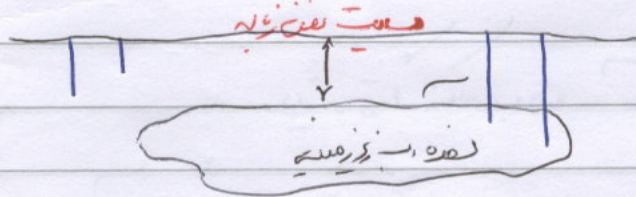 سایت دفن زباله
سفره آب زیرزمینی